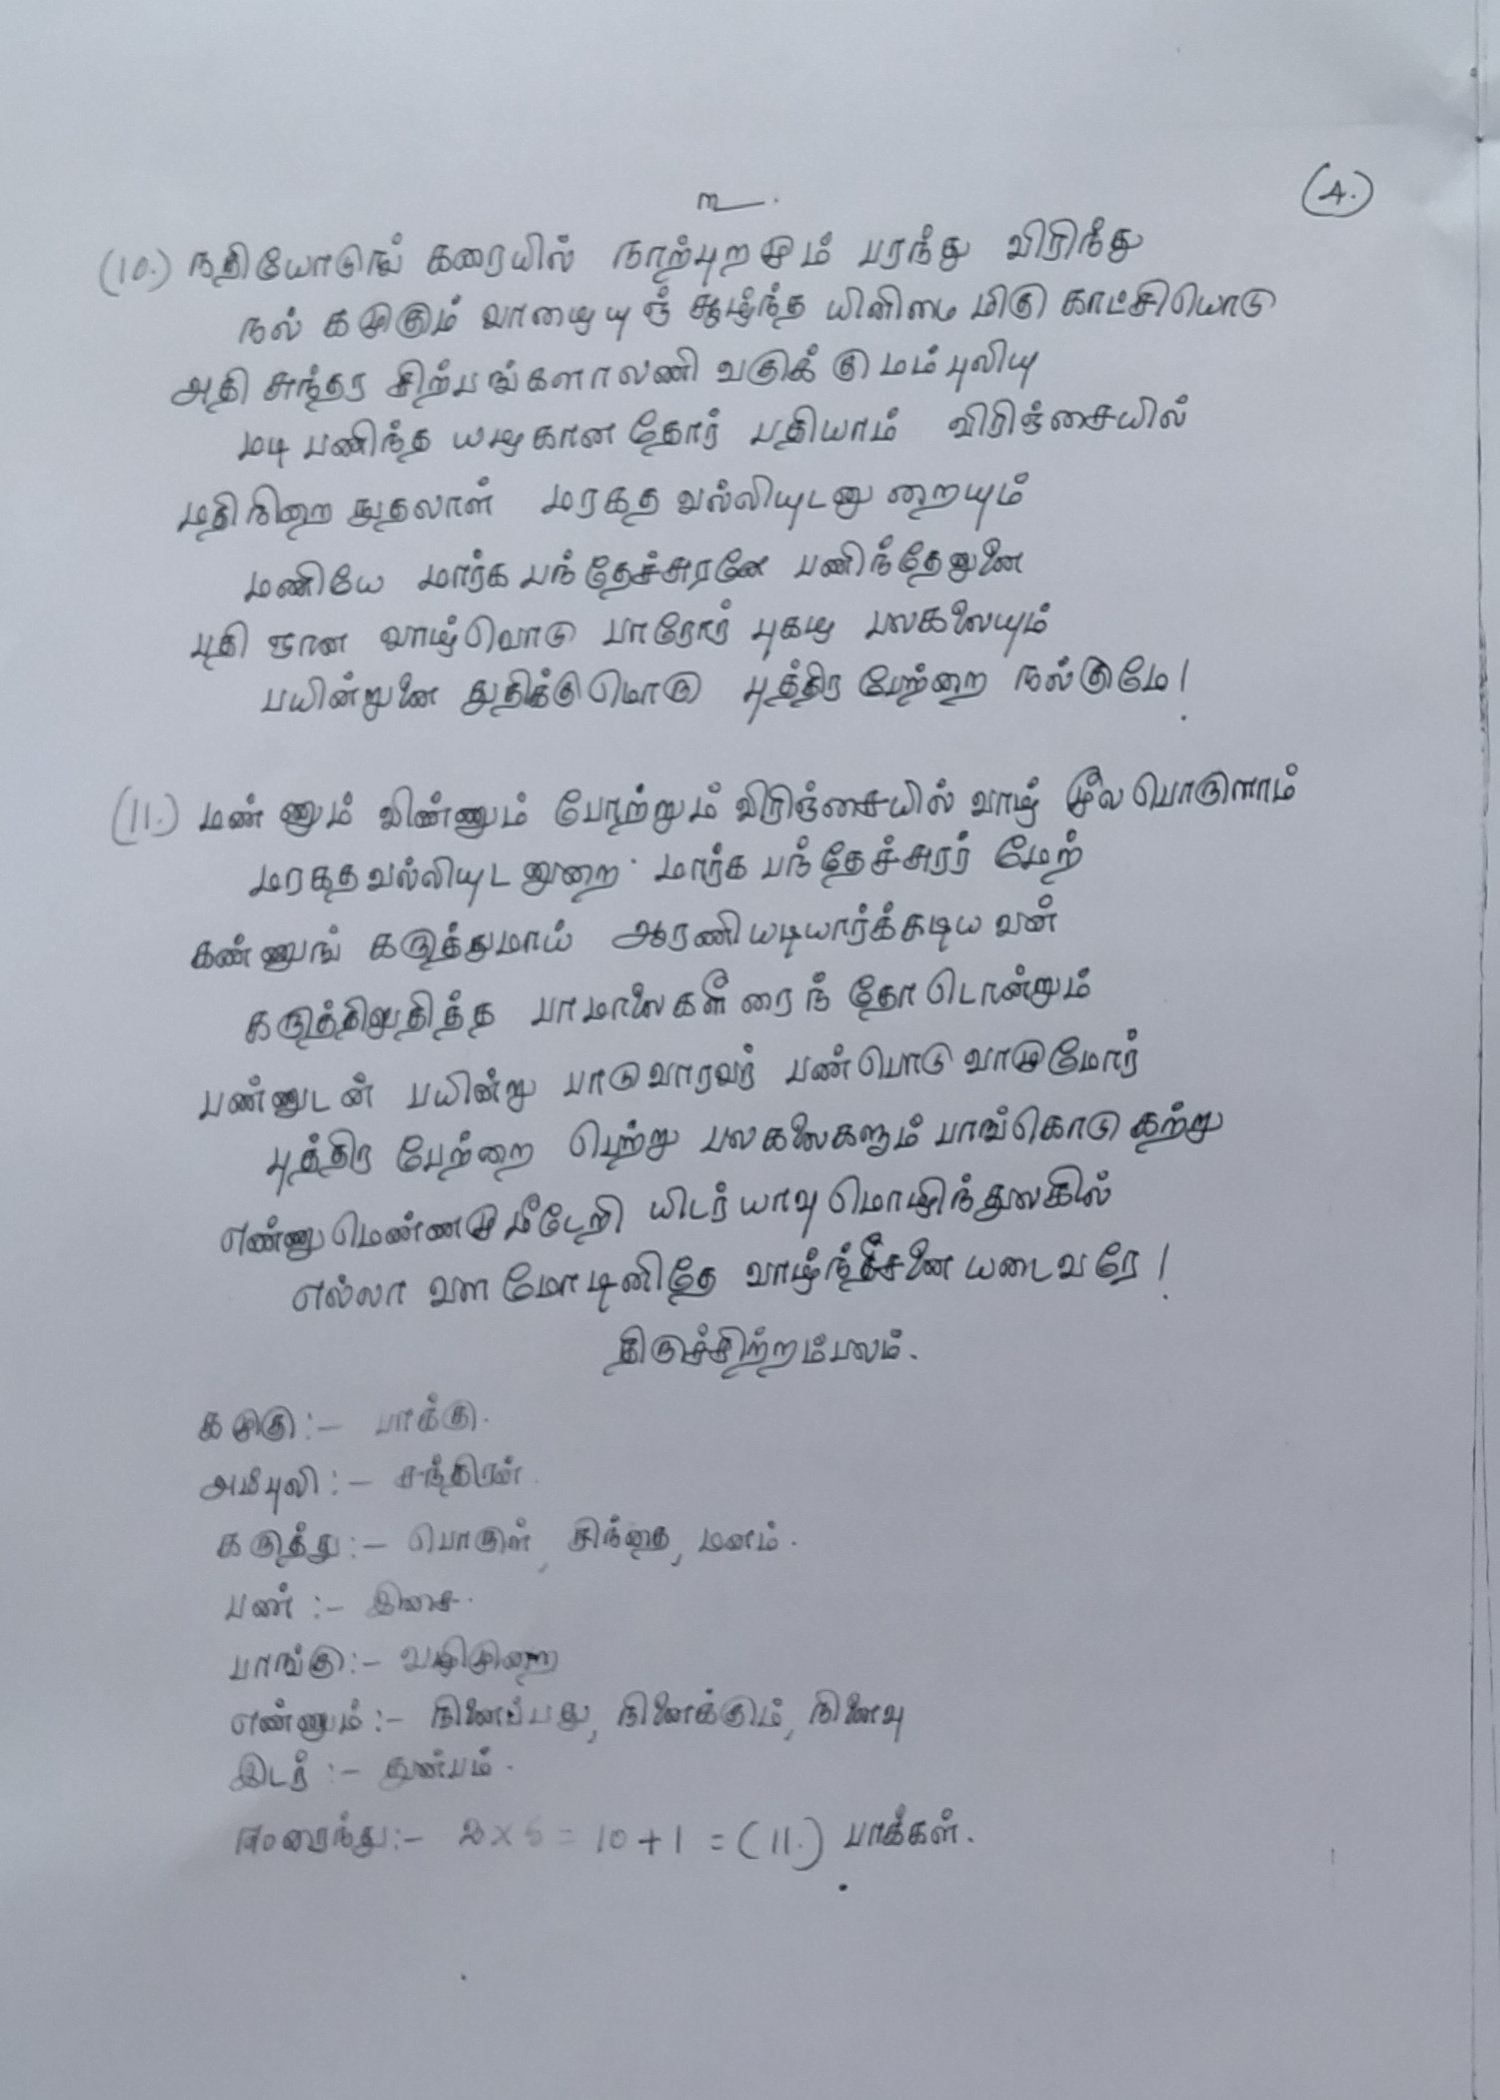 உ.
(4.)
(10.) நதியோடுங் கரையில் நாற்புறமும் பரந்து விரிந்து
நல் கமுகும் வாழையுஞ் சூழ்ந்த யினிமை மிகு காட்சியொடு
அதி சுந்தர சிற்பங்களாலணி வகுக்குமம்புலியு
மடி பணிந்த யழகான தோர் பதியாம் விரிஞ்சையில்
மதிநிறை நுதலாள் மரகத வல்லியுடனு றையும்
மணியே மார்க பந்தேச்சுரனே பணிந்தேனுனை
புதி ஞான வாழ்வொடு பாரோர் புகழ பலகலையும்
பயின்றுனை துதிக்குமொரு புத்திர பேற்றை நல்குமே!
(11.) மண்ணும் விண்ணும் போற்றும் விரிஞ்சையில் வாழ் மூலபொருளாம்
மரகதவல்லியுடனுறை மார்க பந்தேச்சுரர் மேற்
கண்ணுங் கருத்துமாய் ஆரணியடியார்க்கடியவன்
கருத்திலுதித்த பாமாலைகளீரைந் தோடொன்றும்
பண்ணுடன் பயின்று பாடுவாரவர் பண்பொடு வாழுமோர்
புத்திர பேற்றை பெற்று பலகலைகளும் பாங்கொடு கற்று
எண்ணுமெண்ணமுமீடேறி யிடர் யாவு மொழிந்துலகில்
எல்லா வள மோடினிதே வாழ்ந்தீசனை யடைவரே!
திருச்சிற்றம்பலம்.
கமுகு:- பாக்கு.
அம்புலி:- சந்திரன்.
கருத்து:- பொருள், சிந்தை, மனம்.
பண் :- இசை.
பாங்கு:- வழிமுறை
எண்ணும்:- நினைப்பது, நினைக்கும், நினைவு
இடர் :- துன்பம்.
ஈரைந்து:- 2×5 = 10+1 = (11.) பாக்கள்.